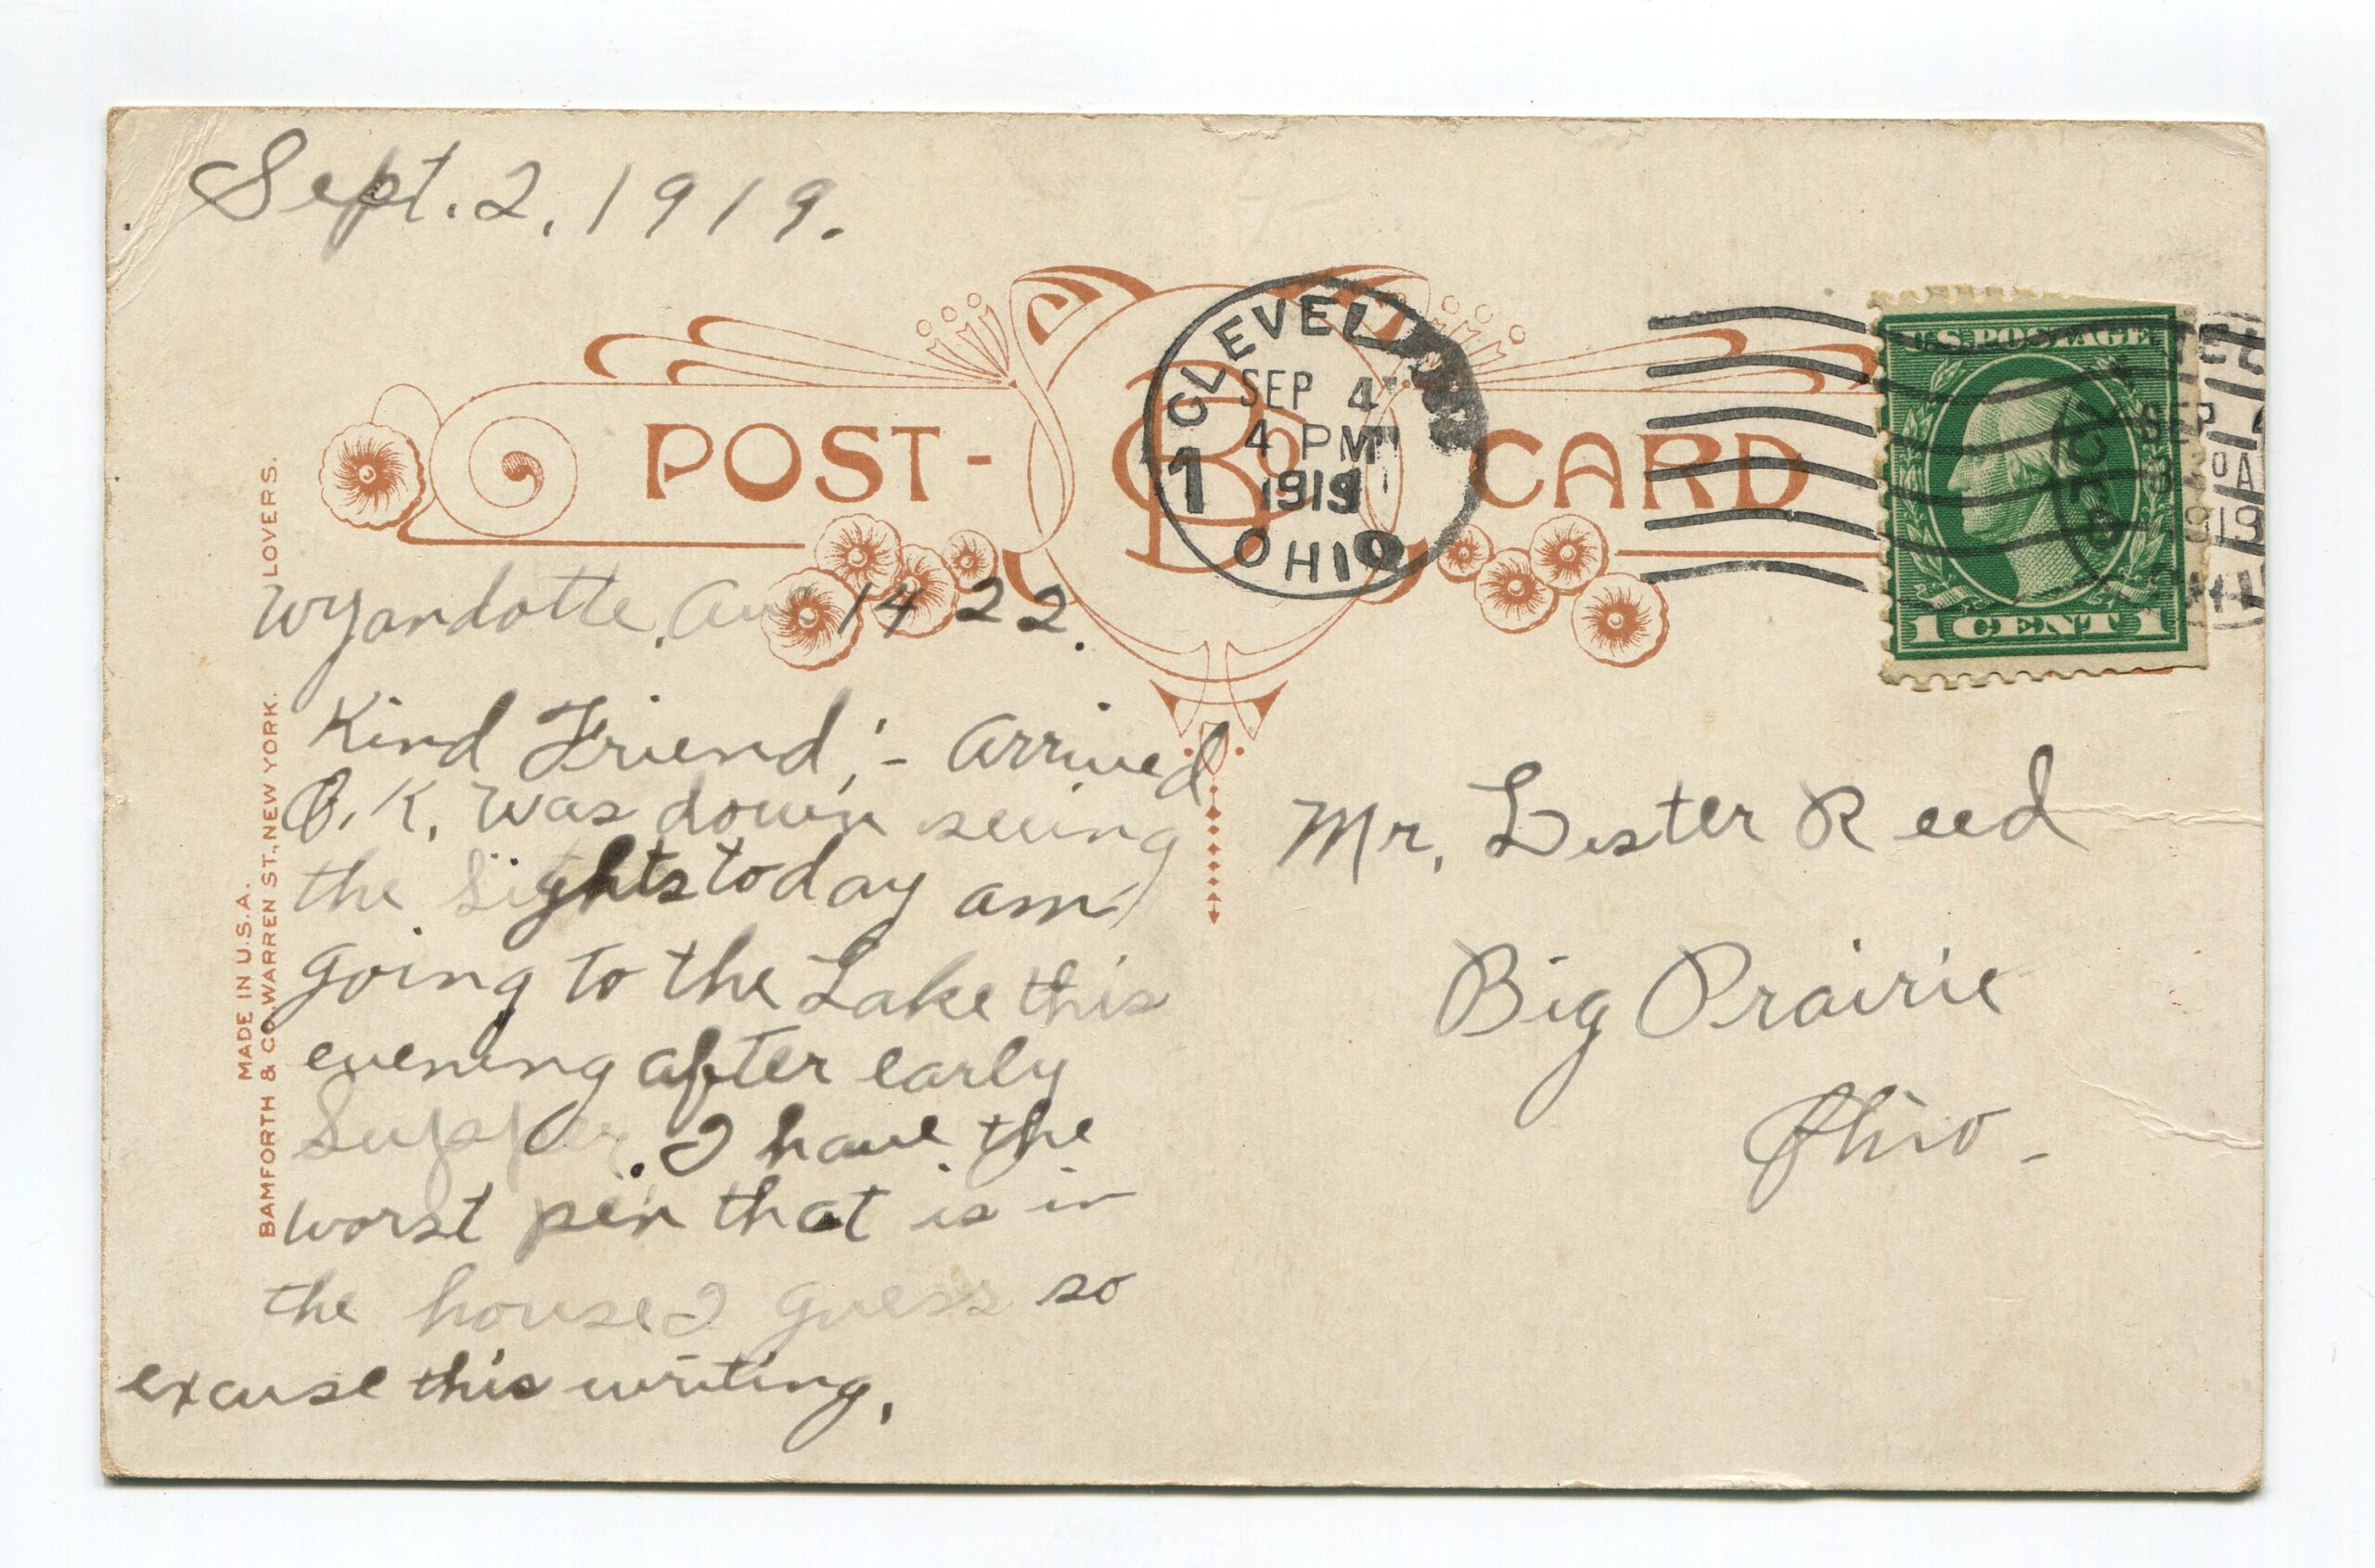 Sept. 2, 1919.
POST-CARD
B Co
CLEVEL
SEP 4
4 PM
1919
1
OHIO
U.S. POSTAGE
1 CENT 1
SEP
1919
LOVERS.
MADE IN U.S.A.
BAMFORTH & CO. WARREN ST., NEW YORK.
Wyandotte, Ave 1422.
Kind Friend;- Arrived
O.K. Was down seeing
the sights today am
going to the Lake this
evening after early
Supper. I have the
worst pen that is in
the house I guess so
excuse this writing.
Mr. Lester Reed
Big Prairie
Ohio-